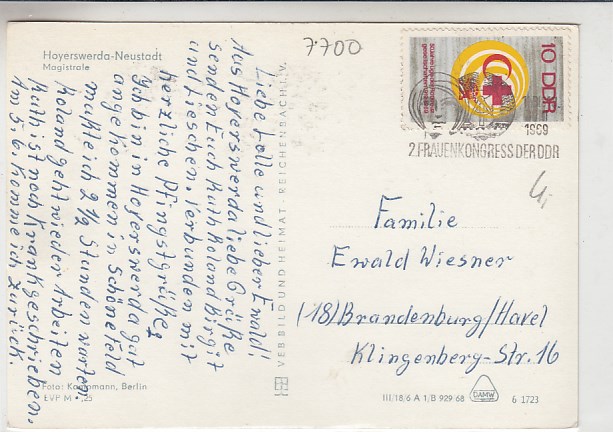 Hoyerswerda-Neustadt
Magistrale
7.700
10 DDR
1969
2.FRAUENKONGRESS DER DDR
4,-
Liebe Lolle und lieber Ewald!
Aus Hoyerswerda liebe Grüße
senden Euch Ruth Roland Birgit
und Lieschen. Verbunden mit
herzliche Pfingstgrüße
Ich bin in Hoyerswerda gut
angekommen in Schönefeld
mußte ich 2 1/2 Stunden warten.
Roland geht wieder Arbeiten
Ruth ist noch Krankgeschrieben.
Am 5.6. Komme ich zurück.
VEB BILD UND HEIMAT · REICHENBACH i. V.
Familie
Ewald Wiesner
(18) Brandenburg/Havel
Klingenberg-Str. 16
Foto: Kampmann, Berlin
EVP M -,25
III/18/6 A 1/B 929 68
DAMW
6 1723